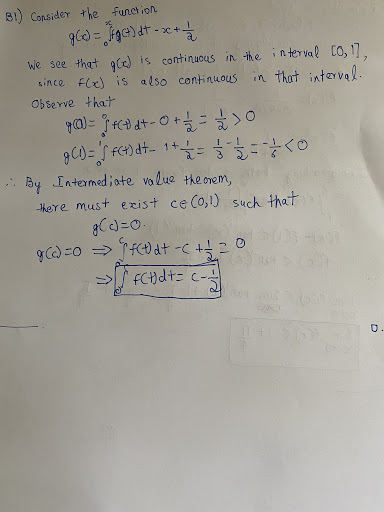 B1) Consider the function
g(x) = ∫₀ˣ f(t) dt - x + 1/2
We see that g(x) is continuous in the interval [0,1],
since f(x) is also continuous in that interval.
Observe that
g(0) = ∫₀⁰ f(t) dt - 0 + 1/2 = 1/2 > 0
g(1) = ∫₀¹ f(t) dt - 1 + 1/2 = 1/3 - 1/2 = -1/6 < 0
∴ By Intermediate value theorem,
there must exist c∈(0,1) such that
g(c)=0.
g(c)=0 ⇒ ∫₀ᶜ f(t) dt - c + 1/2 = 0
⇒ ∫₀ᶜ f(t) dt = c - 1/2
0.